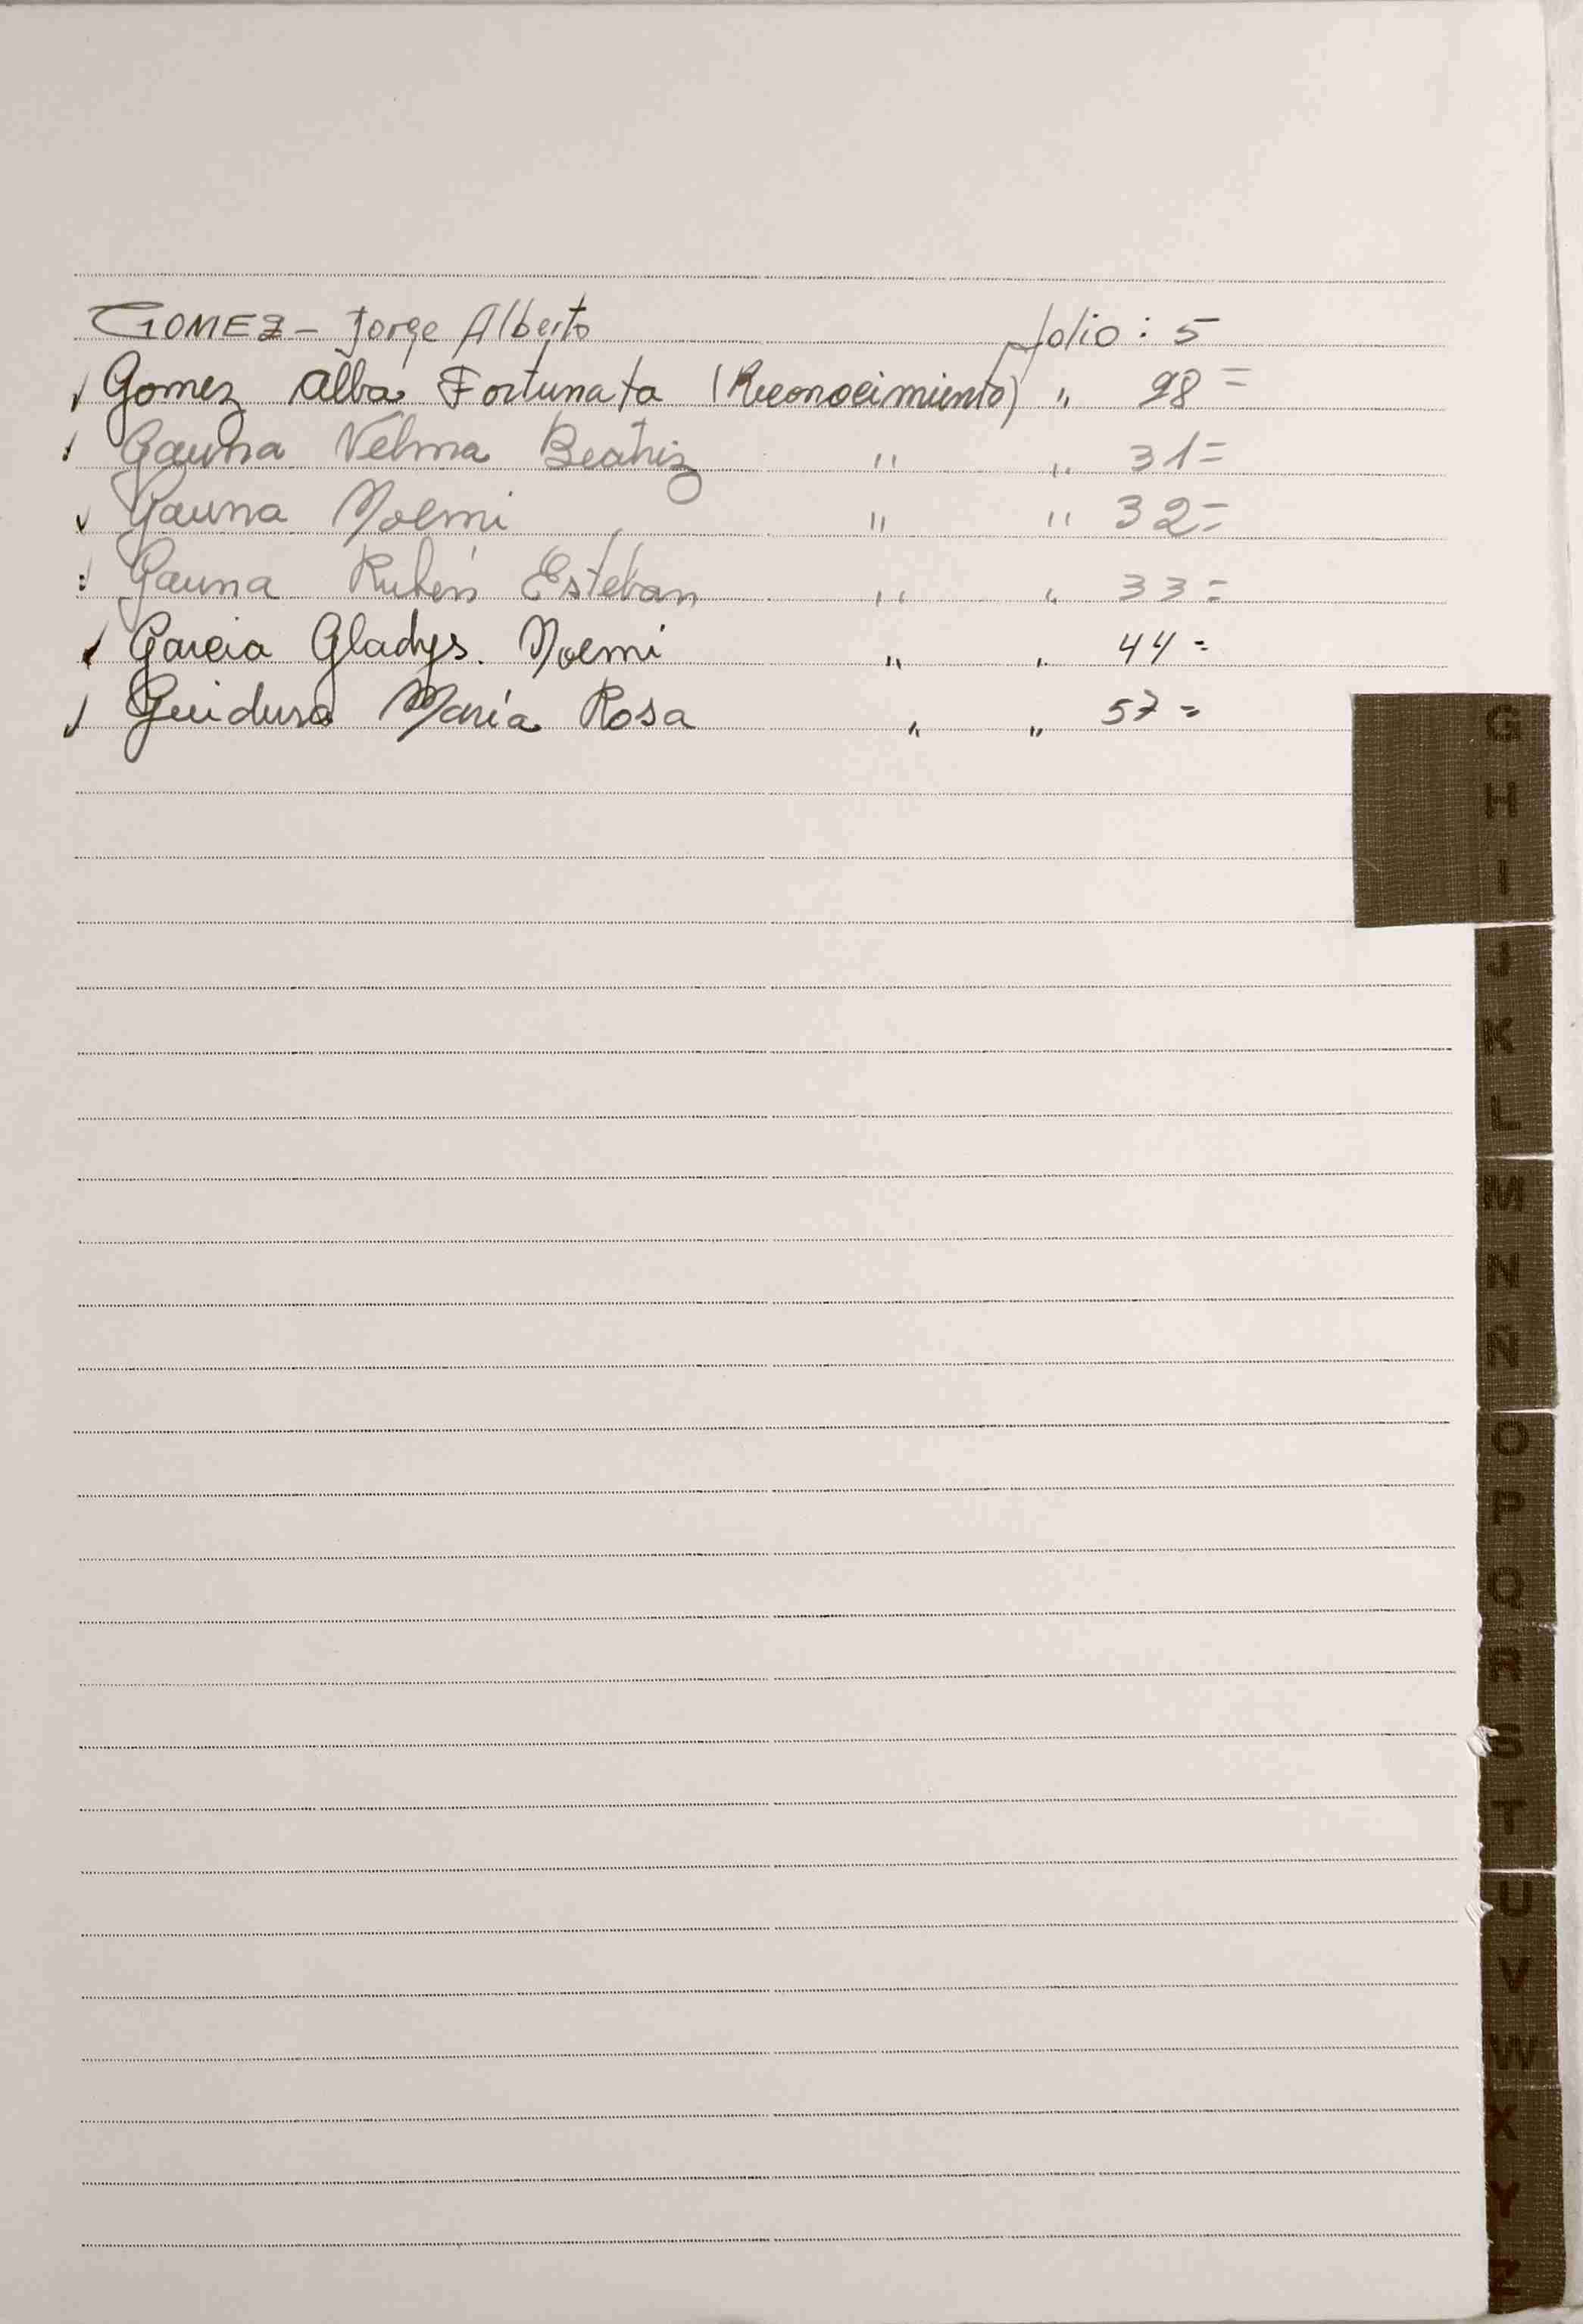 GOMEZ - Jorge Alberto folio : 5
✓ Gomez Alba Fortunata (Reconocimiento) " 98 =
✓ Gauna Velma Beatriz " " 31 =
✓ Gauna Noemi " " 32 =
✓ Gauna Rubén Esteban " " 33 =
✓ Garcia Gladys. Noemi " " 44 =
✓ María Rosa " " 57 =
G
H
I
J
K
L
M
N
Ñ
O
P
Q
R
S
T
U
V
W
X
Y
Z